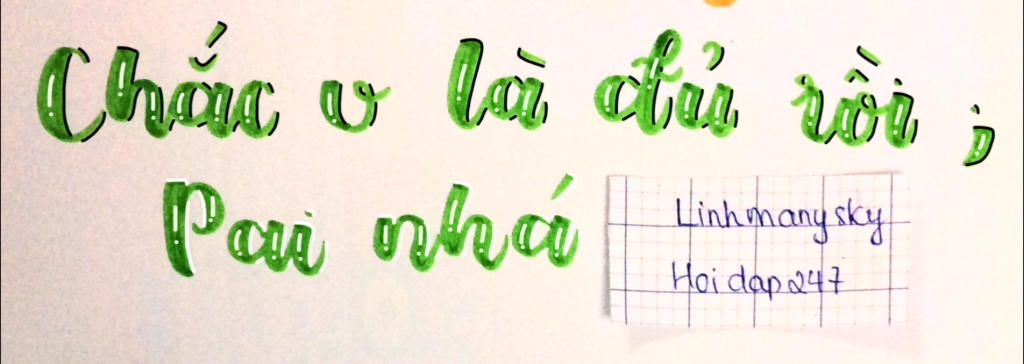 Chắc v là đủ rồi ;
Pai nhá
Linhmanysky
Hoidap247